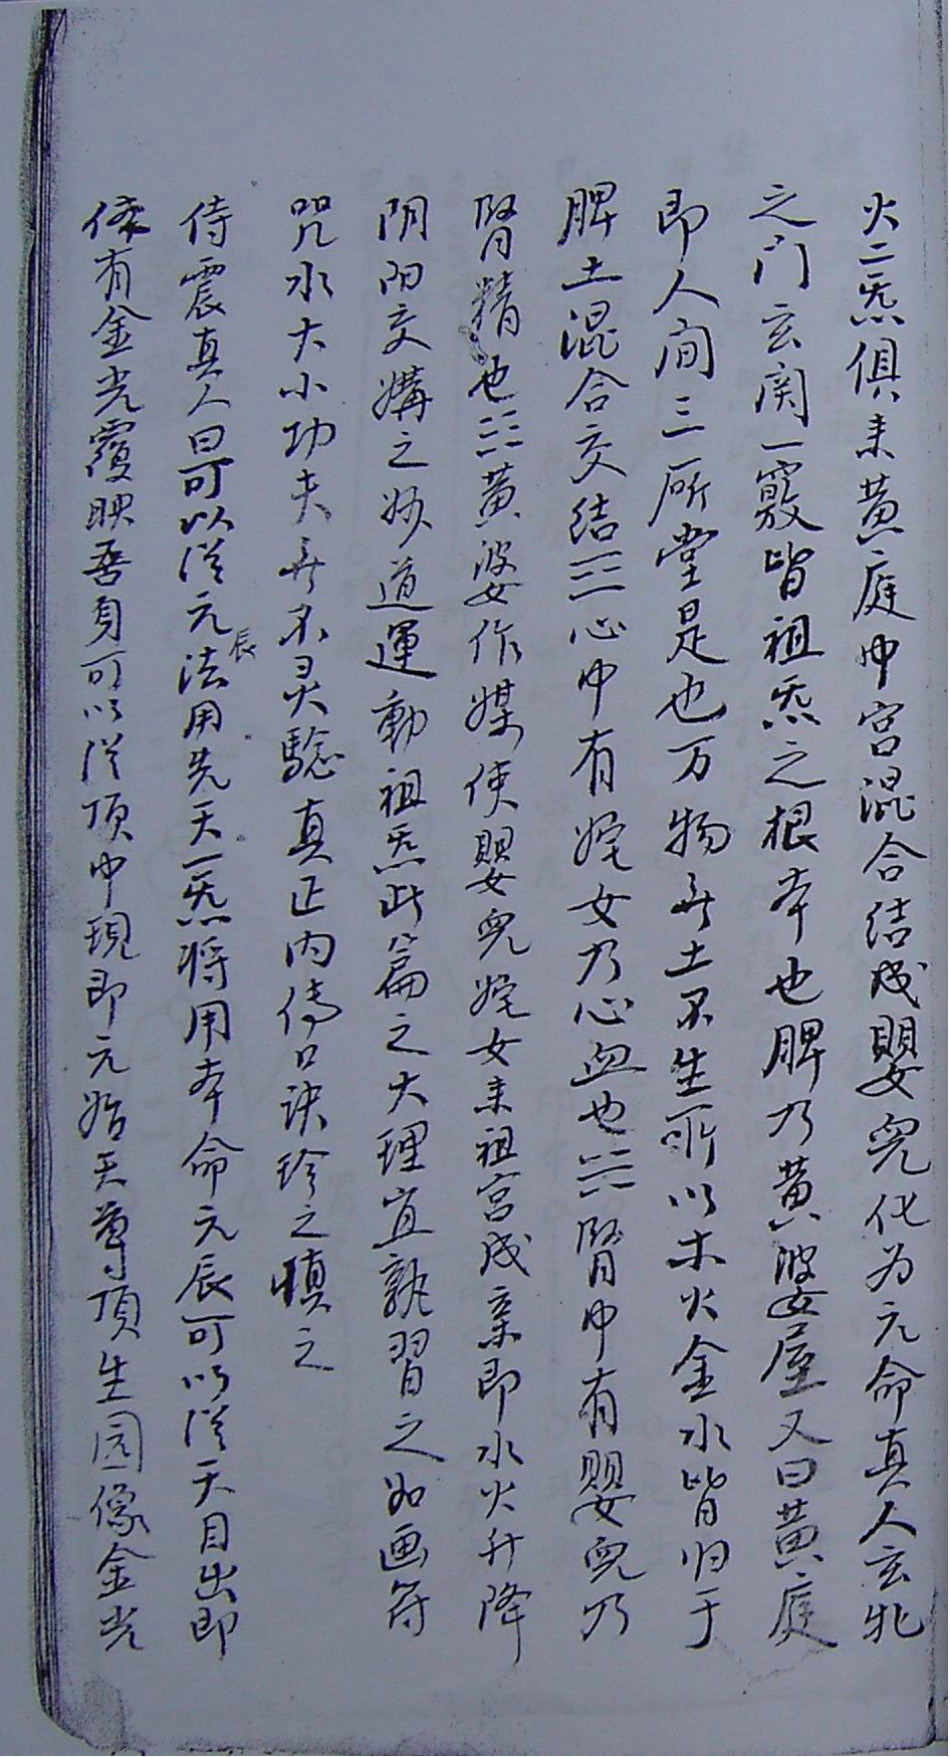 火二炁俱来黄庭中宫混合结成嬰兒化为元命真人玄牝
之门玄関一竅皆祖炁之根本也脾乃黄婆屋又曰黄庭
即人间三所堂是也万物无土不生所以木火金水皆归于
脾土混合交结☲心中有姹女乃心血也☵腎中有嬰兒乃
腎精也☷黄婆作媒使嬰兒姹女来祖宫成亲即水火升降
阴阳交媾之妙道運動祖炁此篇之大理宜熟習之如画符
咒水大小功夫无不灵驗真正内傳口诀珍之慎之
侍震真人曰可以從元辰法用先天一炁将用本命元辰可以從天目出即
有金光覆映吾身可以從頂中現即元始天尊頂生园像金光